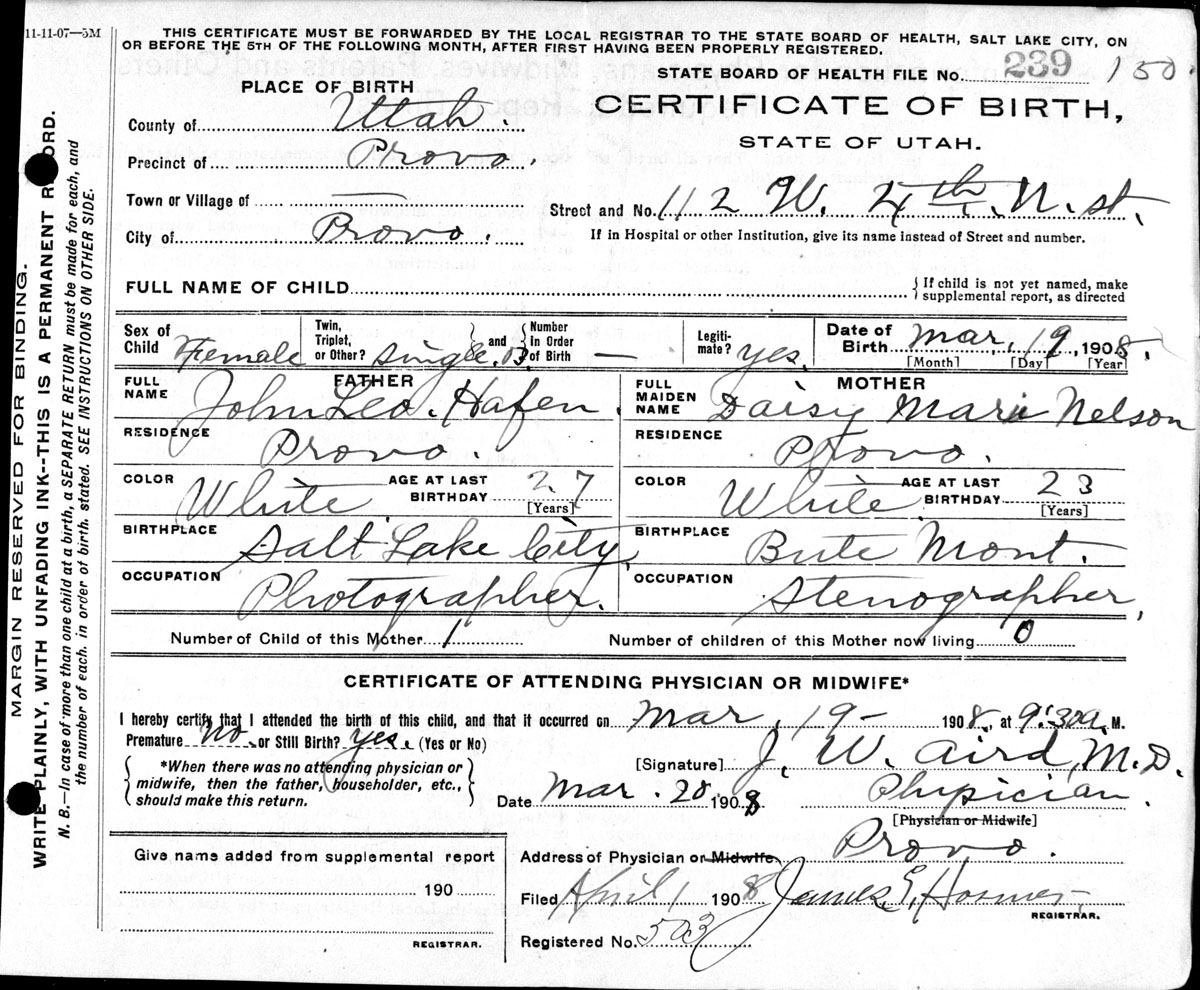 11-11-07—5M
THIS CERTIFICATE MUST BE FORWARDED BY THE LOCAL REGISTRAR TO THE STATE BOARD OF HEALTH, SALT LAKE CITY, ON
OR BEFORE THE 5TH OF THE FOLLOWING MONTH, AFTER FIRST HAVING BEEN PROPERLY REGISTERED.
STATE BOARD OF HEALTH FILE No. 239 150
PLACE OF BIRTH
CERTIFICATE OF BIRTH,
STATE OF UTAH.
County of Utah.
Precinct of Provo.
Town or Village of —
City of Provo.
Street and No. 112 W. 4th. N. st.
If in Hospital or other Institution, give its name instead of Street and number.
FULL NAME OF CHILD
If child is not yet named, make
supplemental report, as directed
Sex of Child Female
Twin, Triplet, or Other? single.
and Number in Order of Birth —
Legiti-mate? yes.
Date of Birth Mar. 19, 1908.
[Month] [Day] [Year]
FATHER
FULL NAME John Leo. Hafen.
RESIDENCE Provo.
COLOR White AGE AT LAST BIRTHDAY 27
[Years]
BIRTHPLACE Salt Lake City,
OCCUPATION Photographer.
MOTHER
FULL MAIDEN NAME Daisy Marie Nelson
RESIDENCE Provo.
COLOR White AGE AT LAST BIRTHDAY 23
[Years]
BIRTHPLACE Bute Mont.
OCCUPATION Stenographer,
Number of Child of this Mother 1
Number of children of this Mother now living 0
CERTIFICATE OF ATTENDING PHYSICIAN OR MIDWIFE*
I hereby certify that I attended the birth of this child, and that it occurred on Mar. 19- 1908, at 9:30a. M.
Premature No. or Still Birth? yes. (Yes or No)
*When there was no attending physician or
midwife, then the father, householder, etc.,
should make this return.
[Signature] J. W. Aird, M.D.
Date Mar. 20, 1908 Physician.
[Physician or Midwife]
Address of Physician or Midwife Provo.
Filed April 1 1908 James E,
REGISTRAR.
Registered No. 503
Give name added from supplemental report
190
REGISTRAR.
MARGIN RESERVED FOR BINDING.
WRITE PLAINLY, WITH UNFADING INK---THIS IS A PERMANENT RECORD.
N. B.—In case of more than one child at a birth, a SEPARATE RETURN must be made for each, and
the number of each, in order of birth, stated. SEE INSTRUCTIONS ON OTHER SIDE.